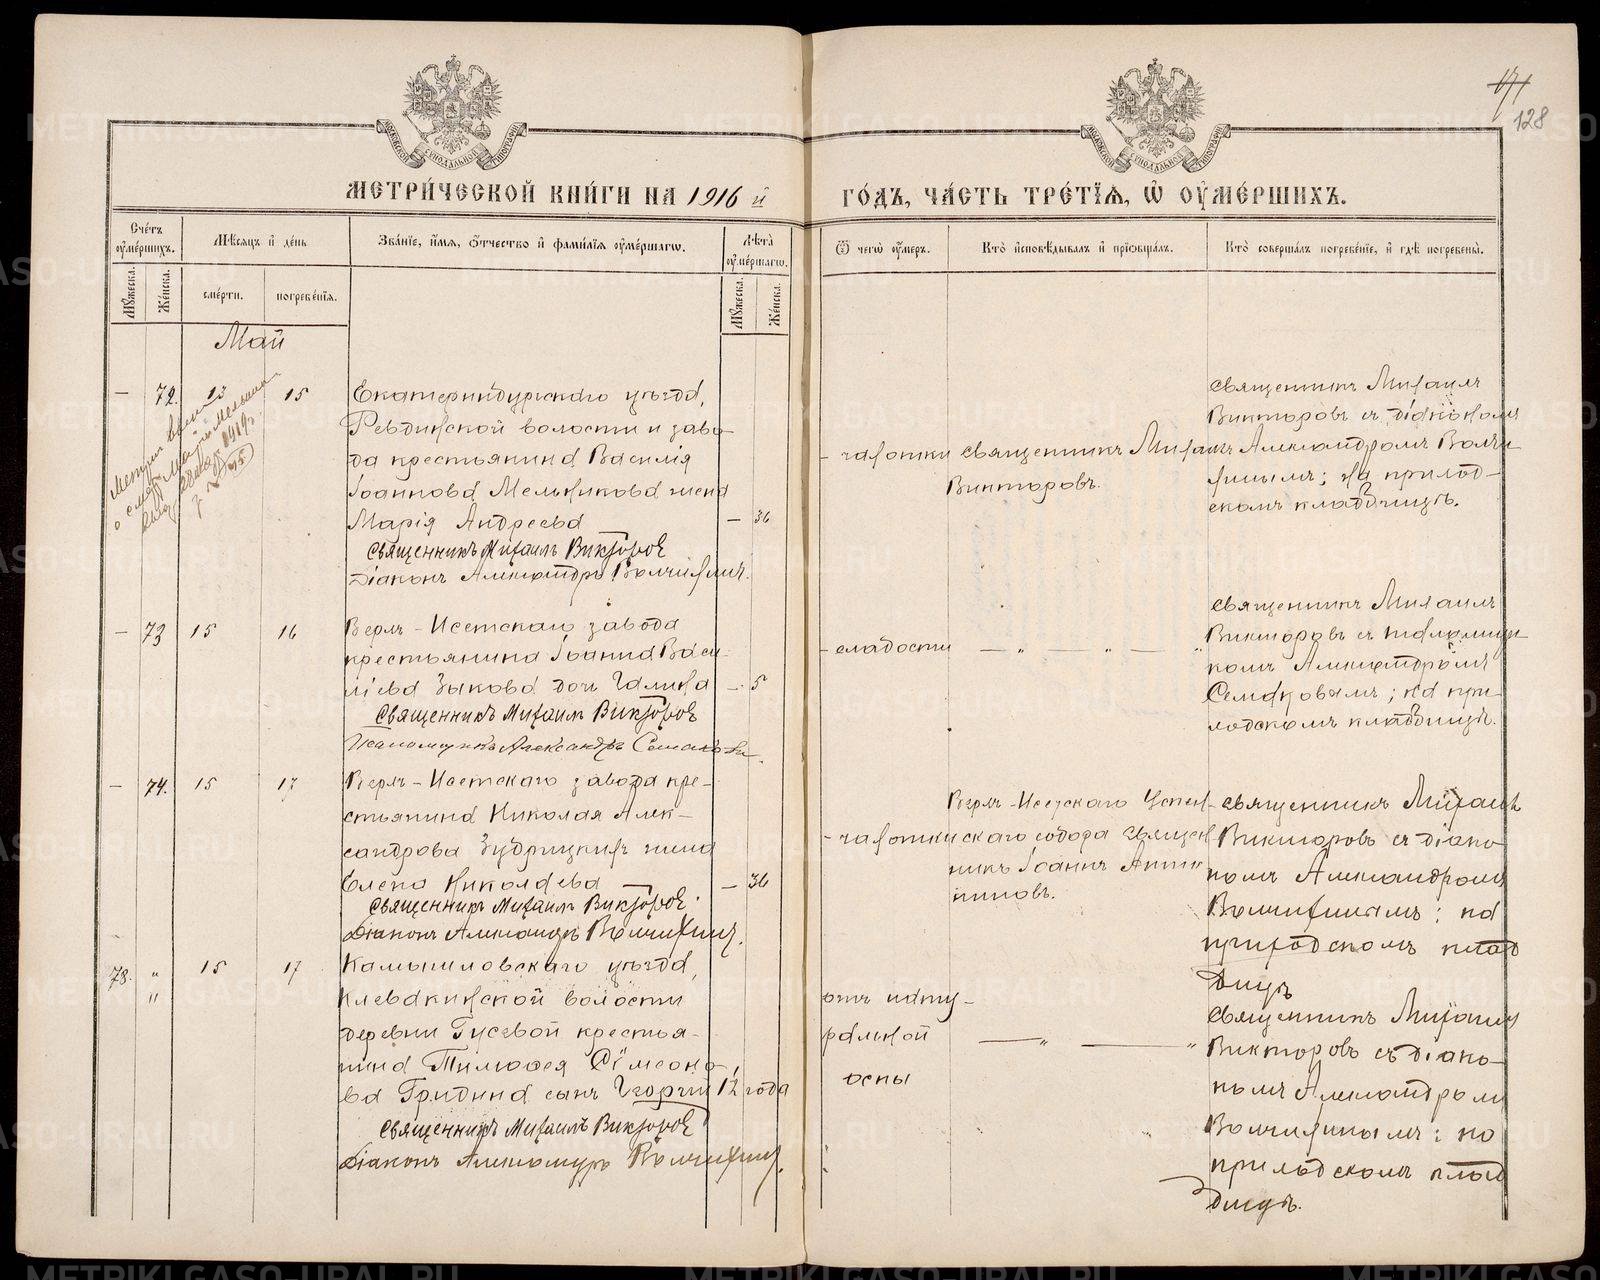 171
128
МЕТРИ́ЧЕСКОЙ КНИ́ГИ НА 1916 й ГО́ДЪ, ЧА́СТЬ ТРЕ́ТІѦ, Ѡ҆ ОУ҆МЕ́РШИХЪ.
МОСКОВСКОЙ СѴНОДАЛЬНОЙ ТИПОГРАФІИ
МОСКОВСКОЙ СѴНОДАЛЬНОЙ ТИПОГРАФІИ
Сче́тъ оу҆ме́ршихъ.
Мꙋ́жеска.
Же́нска.
Мѣ́сѧцъ и҆ де́нь
сме́рти.
погребе́нїѧ.
Зва́нїе, и҆́мѧ, ѻ҆́тчество и҆ фами́лїѧ оу҆ме́ршагѡ.
Лѣ́та оу҆ме́ршагѡ.
Мꙋ́жеска.
Же́нска.
Ѿ чегѡ̀ оу҆́меръ.
Кто̀ и҆сповѣ́дывалъ и҆ прїѡбща́лъ.
Кто̀ соверша́лъ погребе́нїе, и҆ гдѣ̀ погребены̀.
Май
— 72. 13 15
Екатеринбургскаго уѣзда,
Ревдинской волости и заво-
да крестьянина Василія
Іоаннова Мельникова жена
Марія Андреева — 36
Священникъ Михаилъ Викторов
Діаконъ Александръ Волчихин.
чахотки
Священникъ Михаилъ
Викторовъ.
Священникъ Михаилъ
Викторовъ съ діакономъ
Александромъ Волчи-
хинымъ; на приход-
скомъ кладбищѣ.
— 73 15 16
Верхъ-Исетскаго завода
крестьянина Іоанна Васи-
ліева Зыкова дочь Галина — 5
Священникъ Михаилъ Викторов
Псаломщикъ Александръ Семаковъ.
слабости
— „ — „ — „
Священникъ Михаилъ
Викторовъ съ псаломщи-
комъ Александромъ
Семаковымъ; на при-
ходскомъ кладбищѣ.
— 74. 15 17
Верхъ-Исетскаго завода кре-
стьянина Николая Алек-
сандрова жена
Елена Николаева — 36
Священникъ Михаилъ Викторов.
Діаконъ Александръ Волчихин.
чахотки
Верхъ-Исетскаго Успен-
скаго собора Священ-
никъ Іоаннъ
Священникъ Михаилъ
Викторовъ съ діако-
номъ Александромъ
Волчихинымъ: на
приходскомъ клад-
бищѣ
78. „ 15 17
„
Камышловскаго уѣзда,
Клевакинской волости
деревни Гусевой крестья-
нина Тимофея Сімеоно-
ва Гридина сынъ Георгій 12 года
Священникъ Михаилъ Викторов
Діаконъ Александръ Волчихин.
отъ нату-
ральной
оспы
— „ — „
Священникъ Михаилъ
Викторовъ съ діако-
номъ Александромъ
Волчихинымъ: на
приходскомъ клад-
бищѣ.